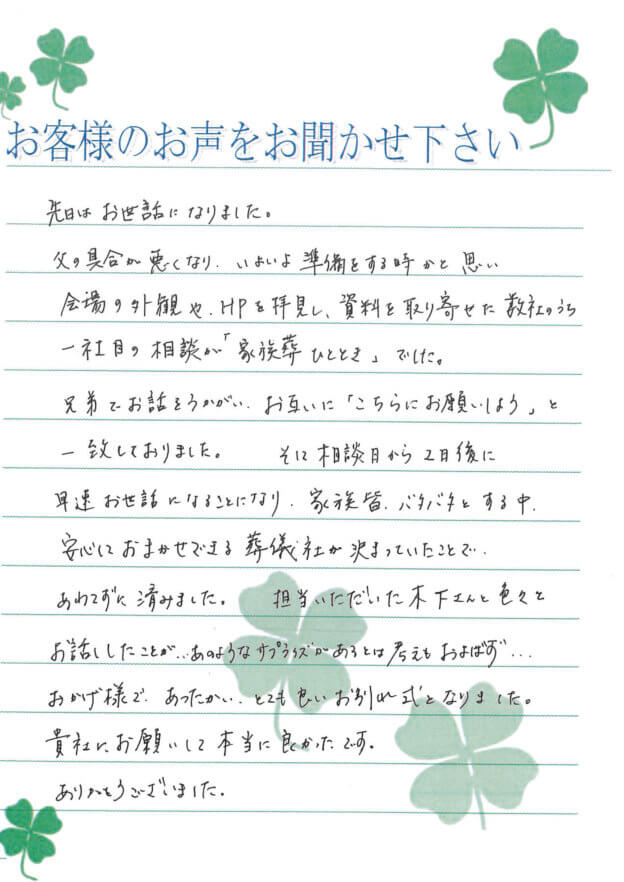 お客様のお声をお聞かせ下さい
先日は お世話になりました。
父の具合が悪くなり、いよいよ 準備をする時かと 思い
会場の外観や、HPを拝見し、資料を取り寄せた 数社のうち
一社目の 相談が「家族葬 ひととき」でした。
兄弟でお話をうかがい、お互いに「こちらにお願いしよう」と
一致しておりました。 そして 相談日から 2日後に
早速 お世話になることになり、家族皆、バタバタと する中、
安心して おまかせできる 葬儀社が 決まっていたことで、
あわてずに 済みました。 担当いただいた 木下さんと 色々と
お話ししたことが…あのようなサプライズがあるとは考えもおよばず…
おかげ様で、あったかい、とても良いお別れ式となりました。
貴社に、お願いして 本当に良かったです。
ありがとうございました。